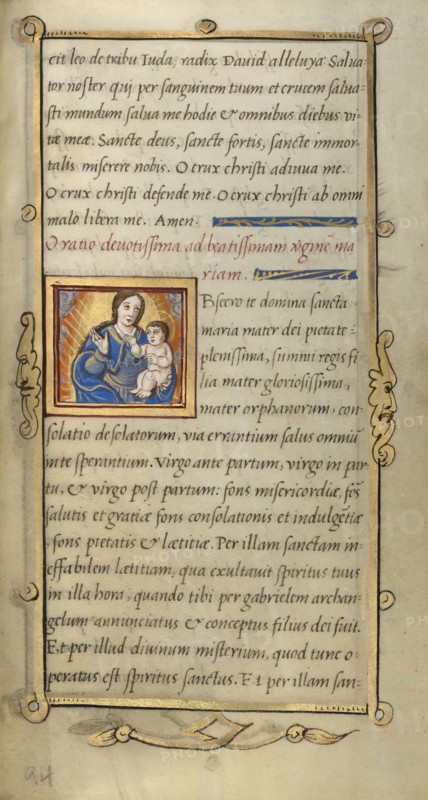 cit leo de tribu Iuda, radix David alleluya Salva-
tor noster qui per sanguinem tuum et crucem salva-
sti mundum salva me hodie & omnibus diebus vi-
tæ meæ. Sancte deus, sancte fortis, sancte immor-
talis miserere nobis. O crux christi adiuva me.
O crux christi defende me. O crux christi ab omni
malo libera me. Amen.
Oratio devotissima ad beatissimam vginē ma
riam.
Bsecro te domina sancta
maria mater dei pietate
plenissima, summi regis fi
lia mater gloriosissima,
mater orphanorum, con-
solatio desolatorum, via errantium salus omniū
in te sperantium. Virgo ante partum, virgo in par
tu, & virgo post partum: fons misericordiæ, fōs
salutis et gratiæ fons consolationis et indulgētiæ
, fons pietatis & lætitiæ. Per illam sanctam in-
effabilem lætitiam, qua exultavit spiritus tuus
in illa hora, quando tibi per gabrielem archan-
gelum annunciatus & conceptus filius dei fuit.
Et per illud divinum misterium, quod tunc o-
peratus est spiritus sanctus. Et per illam san-